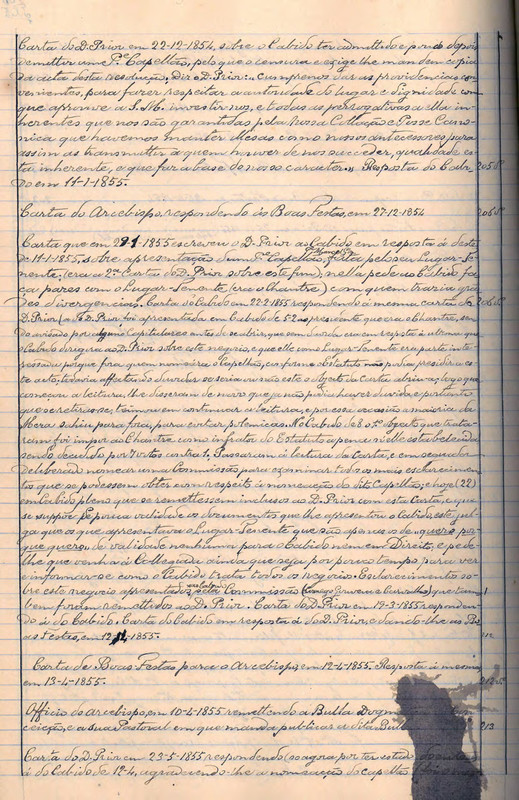 Carta do D. Prior em 22-12-1854, sobre o Cabido ter admittido e pondo depois
demittir um Pe. Capellão, pelo que o censura e exige lhe mandem copia
da acta desta resolução, Diz o D. Prior: cumpre-nos dar as providencias con-
venientes, para fazer respeitar a autoridade do lugar e Dignidade com
que approuve a S. M. investir-nos, e todas as prerogativas a ella in-
herentes que nos são garantidas pela nossa Collação e Posse Cano-
nica que havemos manter illesas como nossos antecessores, para
assim as transmittir a quem houver de nos succeder, qualidade es-
ta inherente, e que faz a base do nosso caracter." Resposta do Cabi- 205
do em 11-1-1855.
Carta do Arcebispo, respondendo ás Boas Festas, em 27-12-1854 206
Carta que em 22-1-1855 escreveu o D. Prior ao Cabido em resposta á deste
de 11-1-1855, sobre apresentação dum Pe. Capellão, feita pelo seu Lugar-Te-
nente, (era a 2a Carta do D. Prior sobre este fim), nella pede ao Cabido fa-
ça pazes com o Lugar-Tenente (era o Chantre) com quem trazia gran-
des divergencias. Carta do Cabido em 22-2-1855 respondendo á mesma carta do 206
D. Prior (a do D. Prior, foi apresentada em Cabido de 5-2, presidente que era o Chantre, sen-
do avisado por alguns Capitulares antes de se abrir, que sem duvida era em resposta á ultima que
o Cabido dirigira ao D. Prior sobre este negocio, e que elle como Lugar-Tenente era parte inte-
ressada porque fora quem nomeára o Capellão, conforme o Estatuto não podia presidir a es-
te acto, todavia affectando duvidar se seria ou não este o objecto da carta abriu-a, logo que
começou a leitura, lhe disseram de novo que já não podia haver duvida, e portanto
que se retirasse, teimou em continuar a leitura, e por essa occasião a maioria da
Mesa sahiu para fora, para evitar polemicas. No Cabido de 8 o 1o objecto que trata-
ram foi impor ao Chantre como infrator do Estatuto a pena nelle estabelecida
sendo decidido por 7 votos contra 1. Passaram á leitura da carta, e em seguida
deliberado nomear uma Commissão para examinar todos os mais esclarecimen-
tos que se podessem obter com respeito á nomeação do dito Capellão, e hoje (22)
em Cabido pleno que se remettessem inclusos ao D. Prior com esta Carta, e que
se suppõe poria validade os documentos que lhe apresentou o Cabido este jul-
ga que os que apresentava o Lugar-Tenente que são apenas o de — quero por-
que quero — de validade nenhuma para o Cabido nem em Direito, e pede-
lhe que venha á Collegiada ainda que seja por pouco tempo, para ver
e informar-se como o Cabido trata todos os negocios. Esclarecimento so-
bre este negocio apresentados pela Commissão (Conego Gouveia e Carvalho) que tam-
bem foram remettidos ao D. Prior. Carta do D. Prior em 19-3-1855 responden-
do á do Cabido. Carta do Cabido em resposta á do D. Prior, e dando-lhe as Bo-
as Festas, em 12-4-1855.
Carta de Boas Festas para o Arcebispo, em 12-4-1855. Resposta á mesma,
em 13-4-1855.
Officio do Arcebispo, em 10-4-1855 remettendo a Bulla Dogm
ceição, e a sua Pastoral em que manda publicar a dita Bul 213
Carta do D. Prior em 23-5-1855 respondendo (só agora por ter estad
á do Cabido de 12-4, agradecendo-lhe a nomeação do Capellão